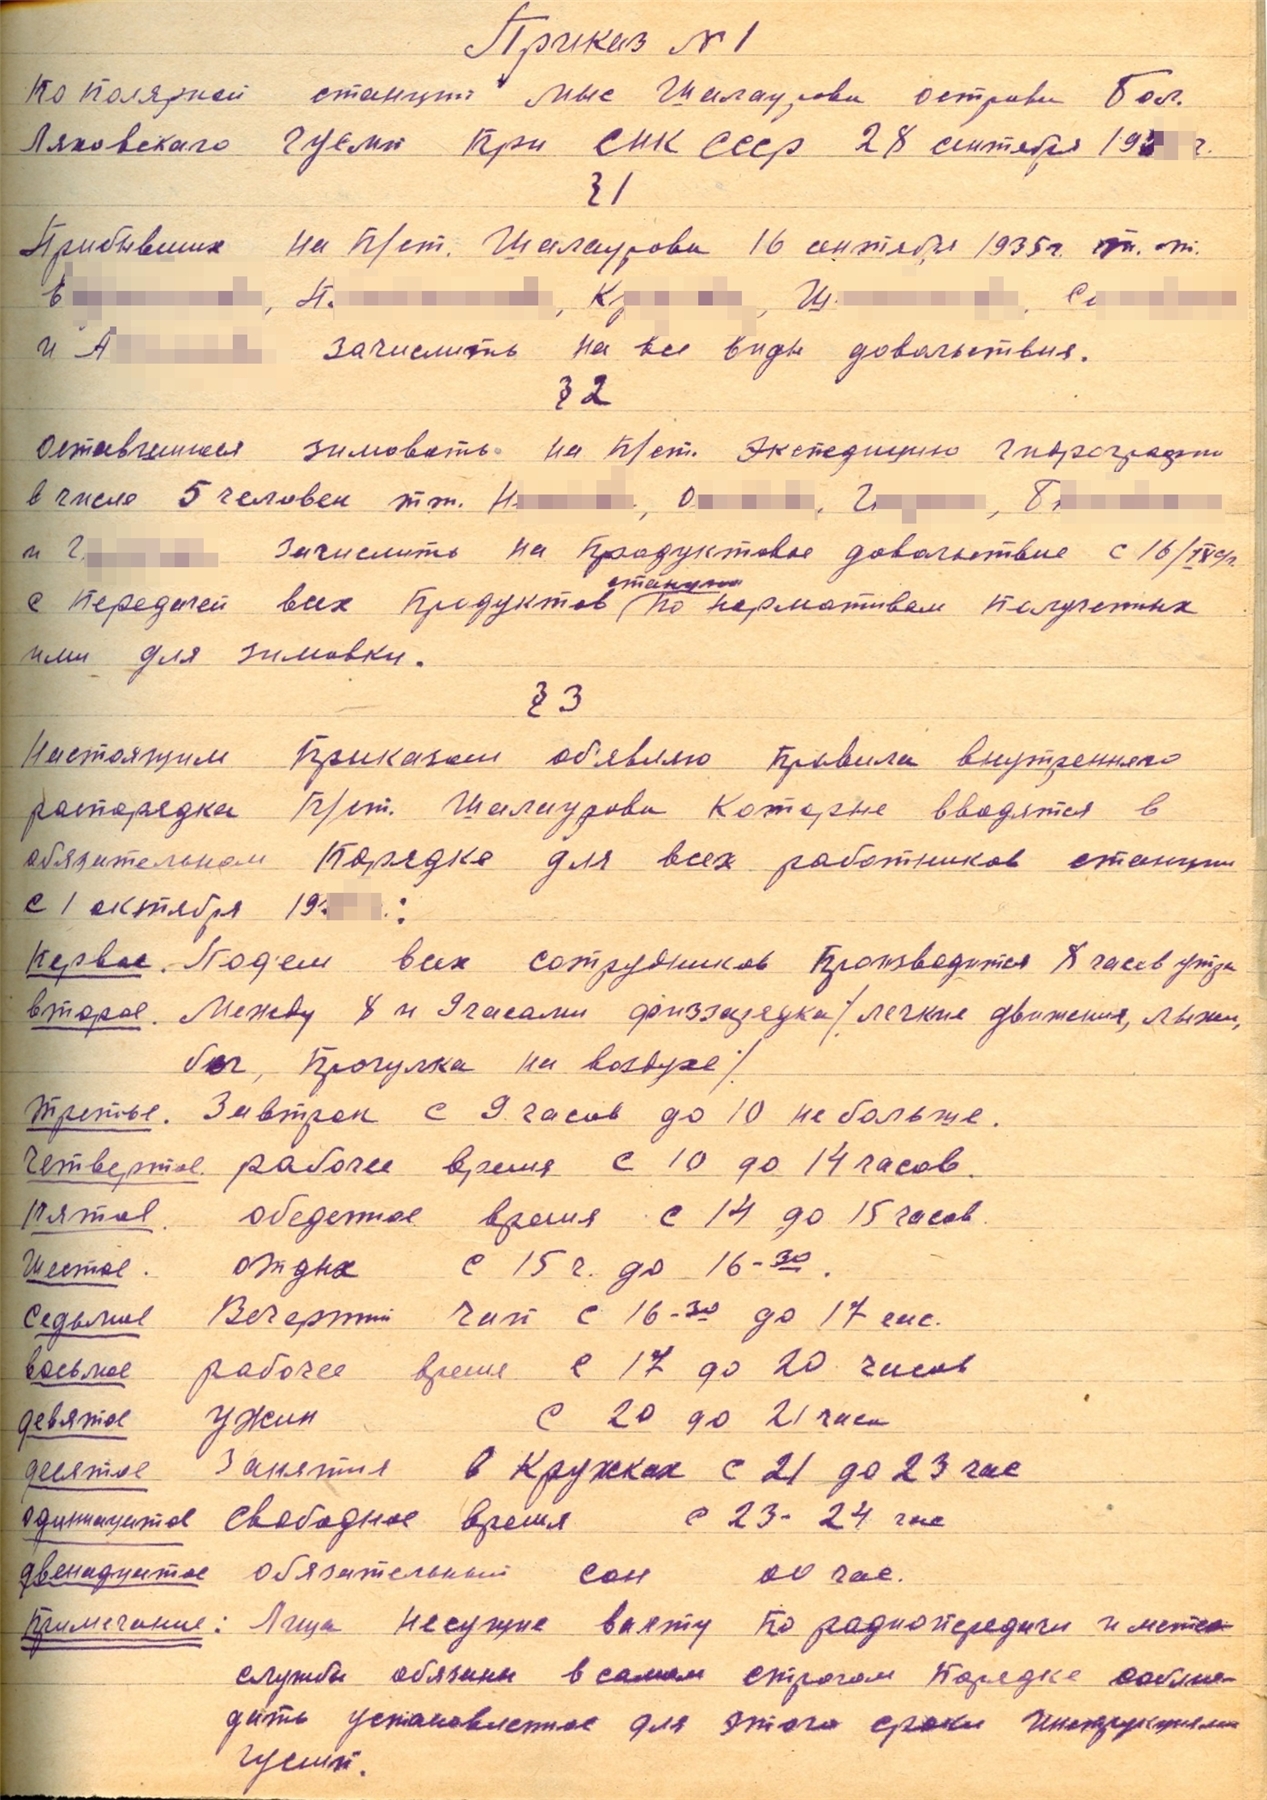 Приказ №1
По полярной станции мыс Шалаурова острова Бол.
Ляховского ГУСМП при СНК СССР 28 сентября 193 г.
§1
Прибывших на п/ст. Шалаурова 16 сентября 1935г. т.т.
Е , П. , К , Щ , С
и А зачислить на все виды довольствия.
§2
Оставшиеся зимовать на п/ст. Экспедицию гидрографии
в числе 5 человек тт. Н , О , Г , Б
и Г зачислить на продуктовое довольствие с 16/IX с/г.
с передачей всех продуктов станции по нормативам полученных
ими для зимовки.
§3
Настоящим приказом об'являю правила внутреннего
распорядка п/ст. Шалаурова которые вводятся в
обязательном порядке для всех работников станции
с 1 октября 19 :
Первое. Под'ем всех сотрудников производится 8 часов утра
второе. Между 8 и 9 часами физзарядка /легкие движения, лыжи,
бег, прогулка на воздухе/
Третье. Завтрак с 9 часов до 10 не больше.
Четвертое. рабочее время с 10 до 14 часов.
Пятое. обеденное время с 14 до 15 часов.
Шестое. отдых с 15 г. до 16-30.
Седьмое Вечерний чай с 16-30 до 17 час.
восьмое рабочее время с 17 до 20 часов
девятое ужин с 20 до 21 часа
десятое Занятия в кружках с 21 до 23 час
одинацатое свободное время с 23- 24 час
двенадцатое обязательный сон 00 час.
Примечание: Лица несущие вахту по радиопередачи и метео-
службы обязаны в самом строгом порядке соблю-
дать установленное для этого сроки инструкциями
ГУСМП.